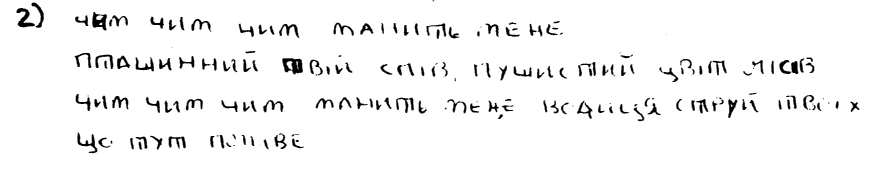 2) чим чим чим манить мене
пташинний твій спів, пушистий цвіт
чим чим чим манить мене водиця струй твоїх
що тут